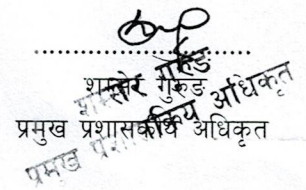 शमशेर गुरुङ
प्रमुख प्रशासकीय अधिकृत
शमशेर गुरुङ
प्रमुख प्रशासकीय अधिकृत